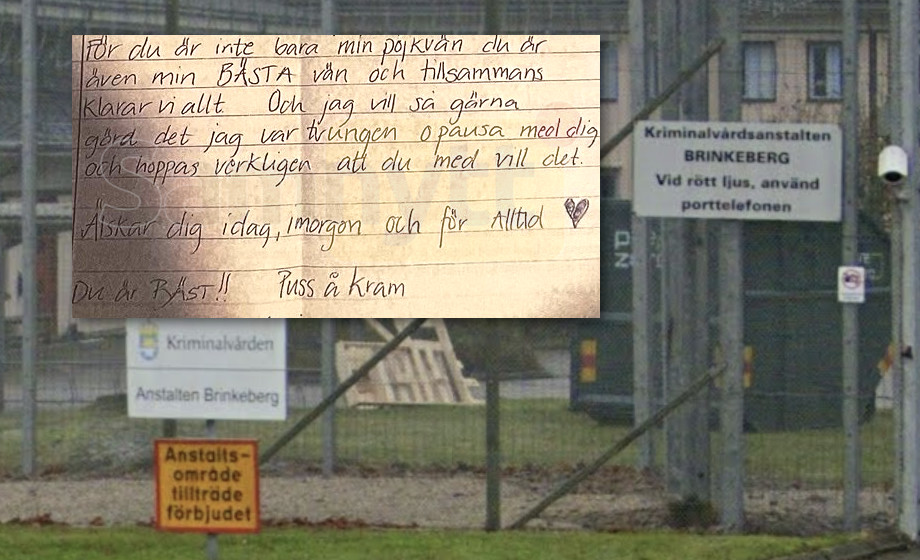 För du är inte bara min pojkvän du är
även min BÄSTA vän och tillsammans
klarar vi allt Och jag vill så gärna
göra det jag var tvungen o pausa med dig
och hoppas verkligen att du med vill det.
Älskar dig idag, imorgon och för Alltid
Du är BÄST!! Puss å kram
Kriminalvårdsanstalten
BRINKEBERG
Vid rött ljus, använd
porttelefonen
Kriminalvården
Anstalten Brinkeberg
Anstalts-
område
tillträde
förbjudet